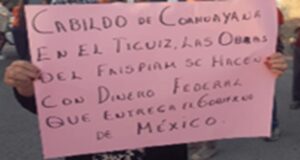 CABILDO DE COAHUAYANA
EN EL TICUIZ, LAS OBRAS
DEL FAISPIAM SE HACEN
CON DINERO FEDERAL
QUE ENTREGA EL GOBIERNO
DE MÉXICO.